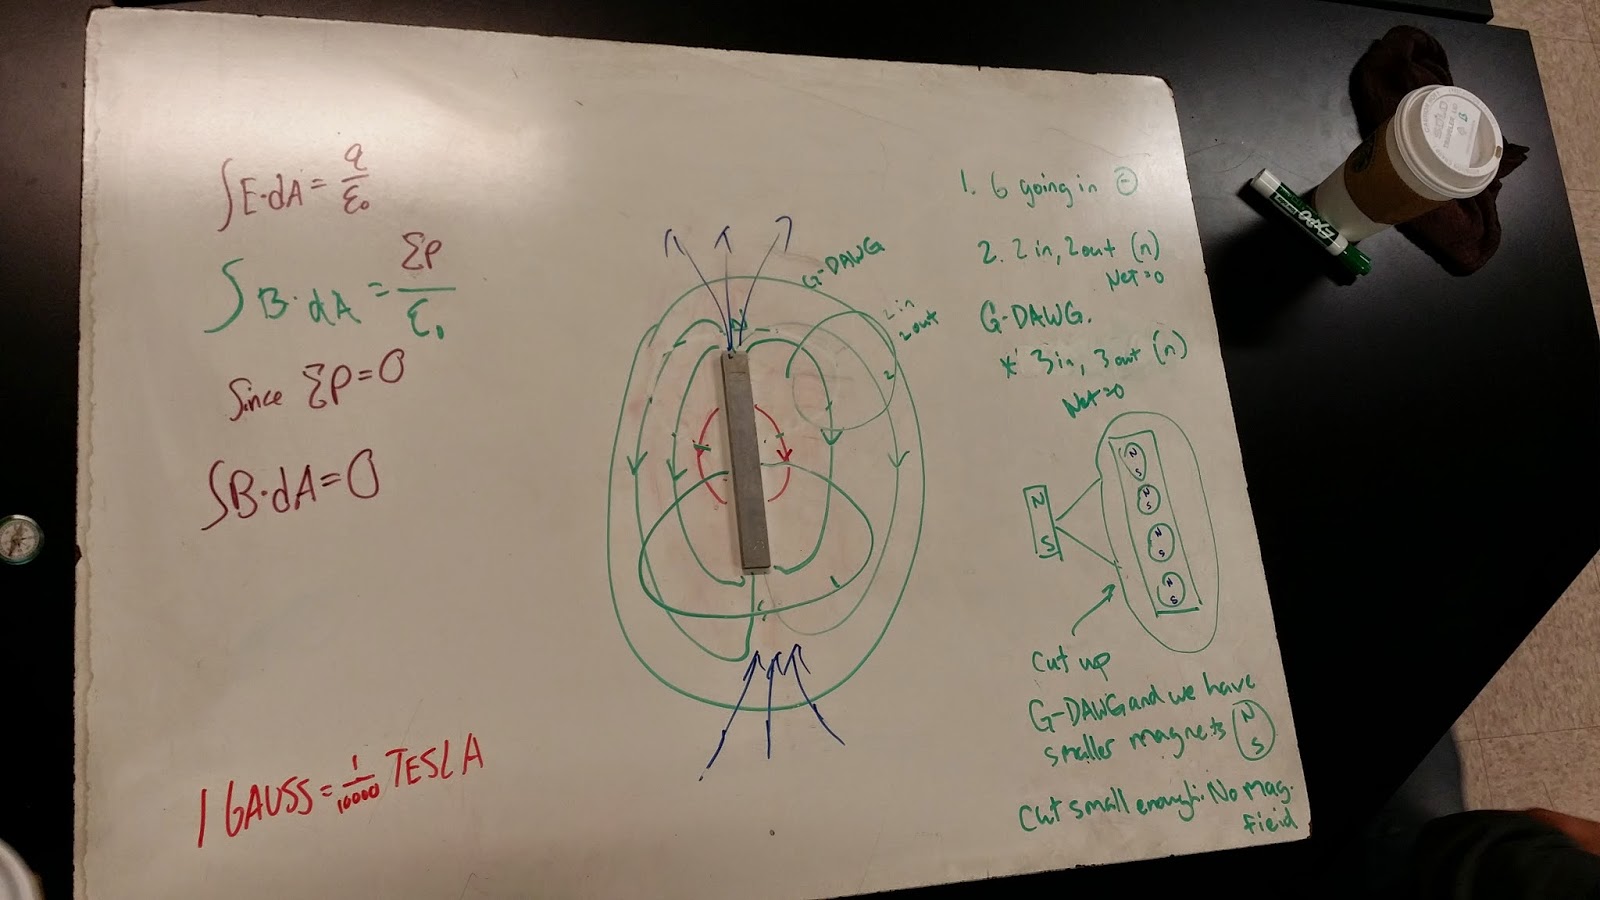 ∫E·dA = q/ε₀
∫B·dA = Σp/ε₀
Since Σp=0
∫B·dA=0
1 GAUSS = 1/10000 TESLA
G-DAWG
2 in
2 out
1
2
N
1. 6 going in ⊖
2. 2 in, 2 out (n)
Net=0
G-DAWG.
* 3 in, 3 out (n)
Net=0
N
S
N
S
N
S
N
S
N
S
Cut up
G-DAWG and we have
smaller magnets N
S
Cut small enough: No mag.
field
EXPO
SOLO
TRAVELER